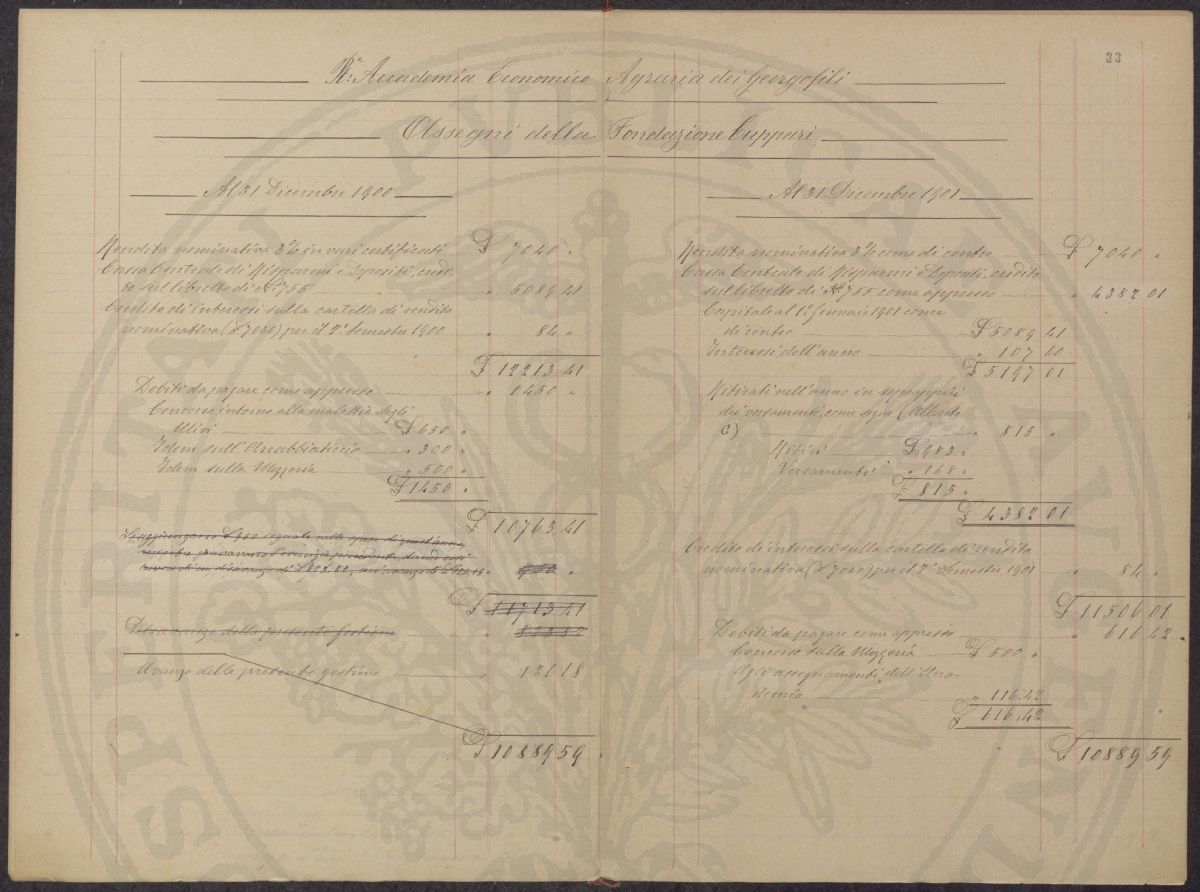 33
R. Accademia Economico Agraria dei Georgofili
Assegni della Fondazione Cuppari
Al 31 Dicembre 1900
Rendita nominativa 3% in vari certificati £ 7040 "
Cassa Centrale di Risparmi e Depositi, credi-
to sul libretto di N° 755 " 5089 41
Credito di interessi sulla cartella di rendita
nominativa (£ 7040) per il 2° Semestre 1900 " 84 "
£ 12213 41
Debiti da pagare come appresso " 1450 "
Concorso intorno alla malattia degli
Ulivi £ 650 "
Idem sull'Arrabbiaticcio " 300 "
Idem sulla Mezzeria " 500 "
£ 1450 "
£ 10763 41
£ 11713 41
Disavanzo della presente gestione " 823 82
Avanzo della presente gestione " 126 18
£ 10889 59
Al 31 Dicembre 1901
Rendita nominativa 3% come di contro £ 7040 "
Cassa Centrale di Risparmi e Depositi, credito
sul libretto di N° 755 come appresso " 4382 01
Capitale al 1° Gennaio 1901 come
di contro £ 5089 41
Interessi dell'anno " 107 60
£ 5197 01
Ritirati nell'anno in
dei versamenti come segue (Allegato
C) " 815 "
Ritiri £ 983 "
Versamenti " 168 "
£ 815 "
£ 4382 01
Credito di interessi sulla cartella di rendita
nominativa (£ 7040) per il 2° Semestre 1901 " 84 "
£ 11506 01
Debiti da pagare come appresso " 616 42
Concorso sulla Mezzeria £ 500 "
Agli assegnamenti dell'Acca-
demia " 116.42
£ 616.42
£ 10889 59